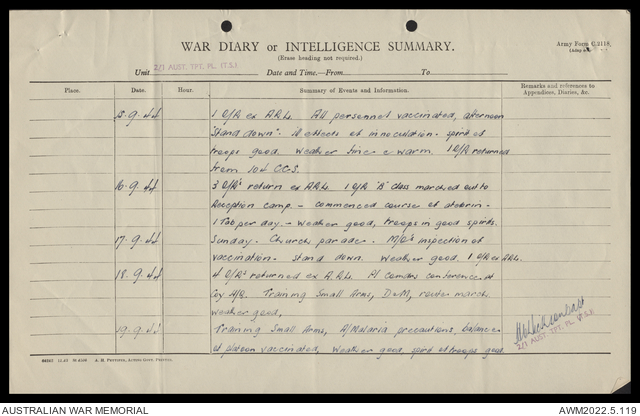 WAR DIARY or INTELLIGENCE SUMMARY.
(Erase heading not required.)
Army Form C.2118.
Unit 2/1 AUST. TPT. PL. (T.S.) Date and Time.—From To
Place. Date. Hour. Summary of Events and Information. Remarks and references to Appendices, Diaries, &c.
15-9-44 1 O/R ex A.R.Ls. All personnel vaccinated, afternoon
"Stand down". Ill effects of innoculation - spirit of
troops good. Weather fine & warm. 1 O/R returned
from 104 C.C.S.
16-9-44 3 O/R's return ex A.R.Ls. 1 O/R "B" class marched out to
Reception camp. - commenced course of atebrin.
1 Tab per day. - Weather good, troops in good spirits.
17-9-44 Sunday. Church parade. M/O's inspection of
vaccination. Stand down. Weather good. 1 O/R ex A.R.Ls.
18.9.44 4 O/R's returned ex A.R.Ls. Pl Comdrs conference at
Coy H/Q. Training Small Arms, D&M, route march
weather good,
19-9-44 Training Small Arms, A/Malaria precautions. balance
of platoon vaccinated, Weather good, spirit of troops good.
2/1 AUST. TPT. PL. (T.S.)
AUSTRALIAN WAR MEMORIAL
AWM2022.5.119